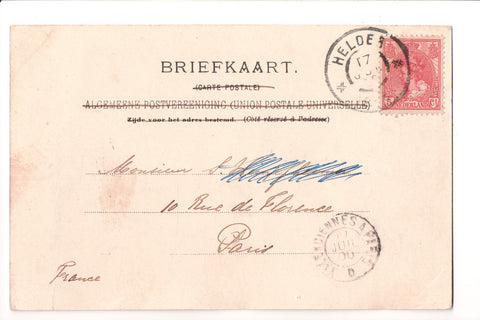 BRIEFKAART.
(CARTE POSTALE)
ALGEMEENE POSTVEREENIGING (UNION POSTALE UNIVERSELLE)
Zijde voor het adres bestemd. (Côté réservé à l'adresse)
HELDER
17
Monsieur
10 Rue de Florence
Paris
France
VALENCIENNES A PARIS
JUIL
00
D